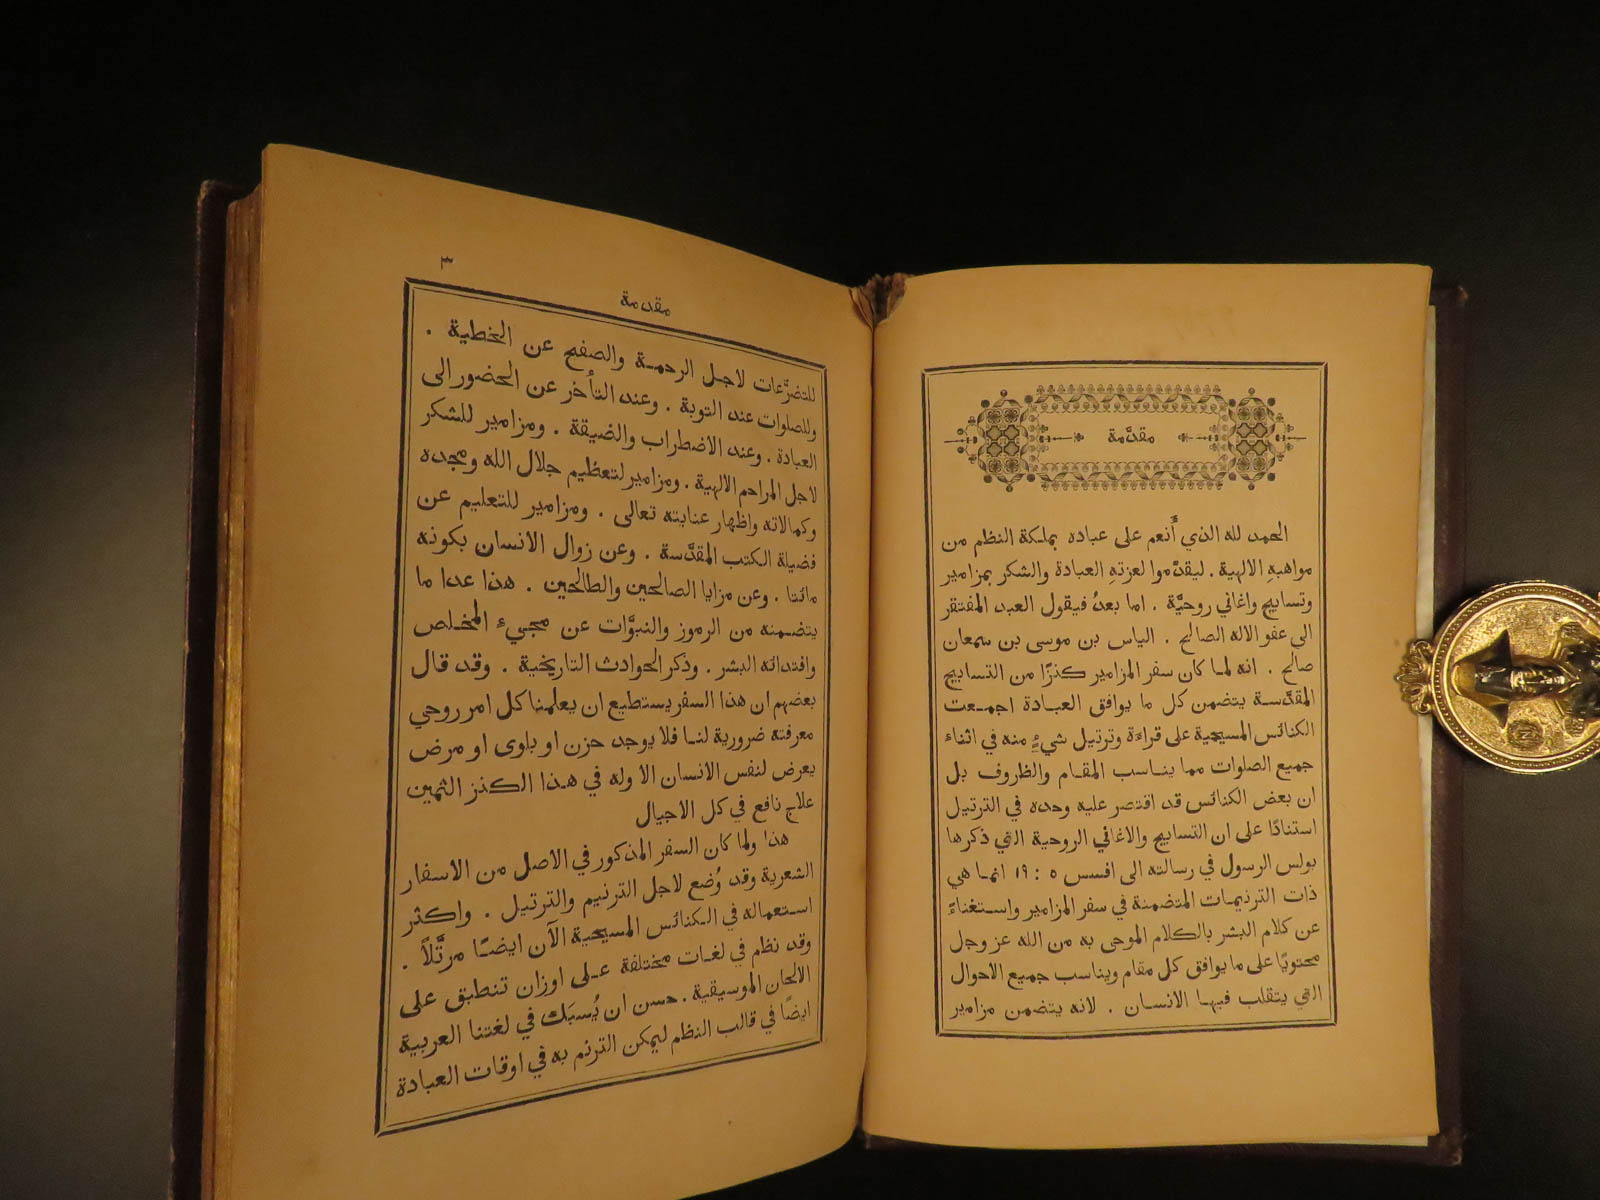 مقدَّمة
الحمد لله الذي أَنعم على عباده بملكة النظم من
مواهبهِ الالهية . ليقدَّموا لعزتهِ العبادة والشكر بمزامير
وتسابيح واغاني روحيَّة . اما بعدُ فيقول العبد المفتقر
الى عفو الاله الصالح . الياس بن موسى بن سمعان
صالح . انه لما كان سفر المزامير كنزًا من التسابيح
المقدَّسة يتضمن كل ما يوافق العبادة اجمعت
الكنائس المسيحية على قراءة وترتيل شيءٍ منه في اثناء
جميع الصلوات مما يناسب المقام والظروف بل
ان بعض الكنائس قد اقتصر عليه وحده في الترتيل
استنادًا على ان التسابيح والاغاني الروحية التي ذكرها
بولس الرسول في رسالته الى افسس ٥ : ١٩ انما هي
ذات الترنيمات المتضمنة في سفر المزامير واستغناءً
عن كلام البشر بالكلام الموحى به من الله عز وجل
محتويًا على ما يوافق كل مقام ويناسب جميع الاحوال
التي يتقلب فيها الانسان . لانه يتضمن مزامير
مقدمة
٣
للتضرُّعات لاجل الرحمة والصفح عن الخطية .
وللصلوات عند التوبة . وعند التأخر عن الحضور الى
العبادة . وعند الاضطراب والضيقة . ومزامير للشكر
لاجل المراحم الالهية . ومزامير لتعظيم جلال الله ومجده
وكمالاته واظهار عنايته تعالى . ومزامير للتعليم عن
فضيلة الكتب المقدَّسة . وعن زوال الانسان بكونه
مائتا . وعن مزايا الصالحين والطالحين . هذا عدا ما
يتضمنه من الرموز والنبوَّات عن مجيء المخلص
وافتدائه البشر . وذكر الحوادث التاريخية . وقد قال
بعضهم ان هذا السفر يستطيع ان يعلمنا كل امر روحي
معرفته ضرورية لنا فلا يوجد حزن او بلوى او مرض
يعرض لنفس الانسان الا وله في هذا الكنز الثمين
علاج نافع في كل الاجيال
هذا ولما كان السفر المذكور في الاصل من الاسفار
الشعرية وقد وُضع لاجل الترنيم والترتيل . واكثر
استعماله في الكنائس المسيحية الآن ايضًا مرتَّلاً .
وقد نظم في لغات مختلفة على اوزان تنطبق على
الالحان الموسيقية . حسن ان يُسبَك في لغتنا العربية
ايضًا في قالب النظم ليمكن الترنم به في اوقات العبادة